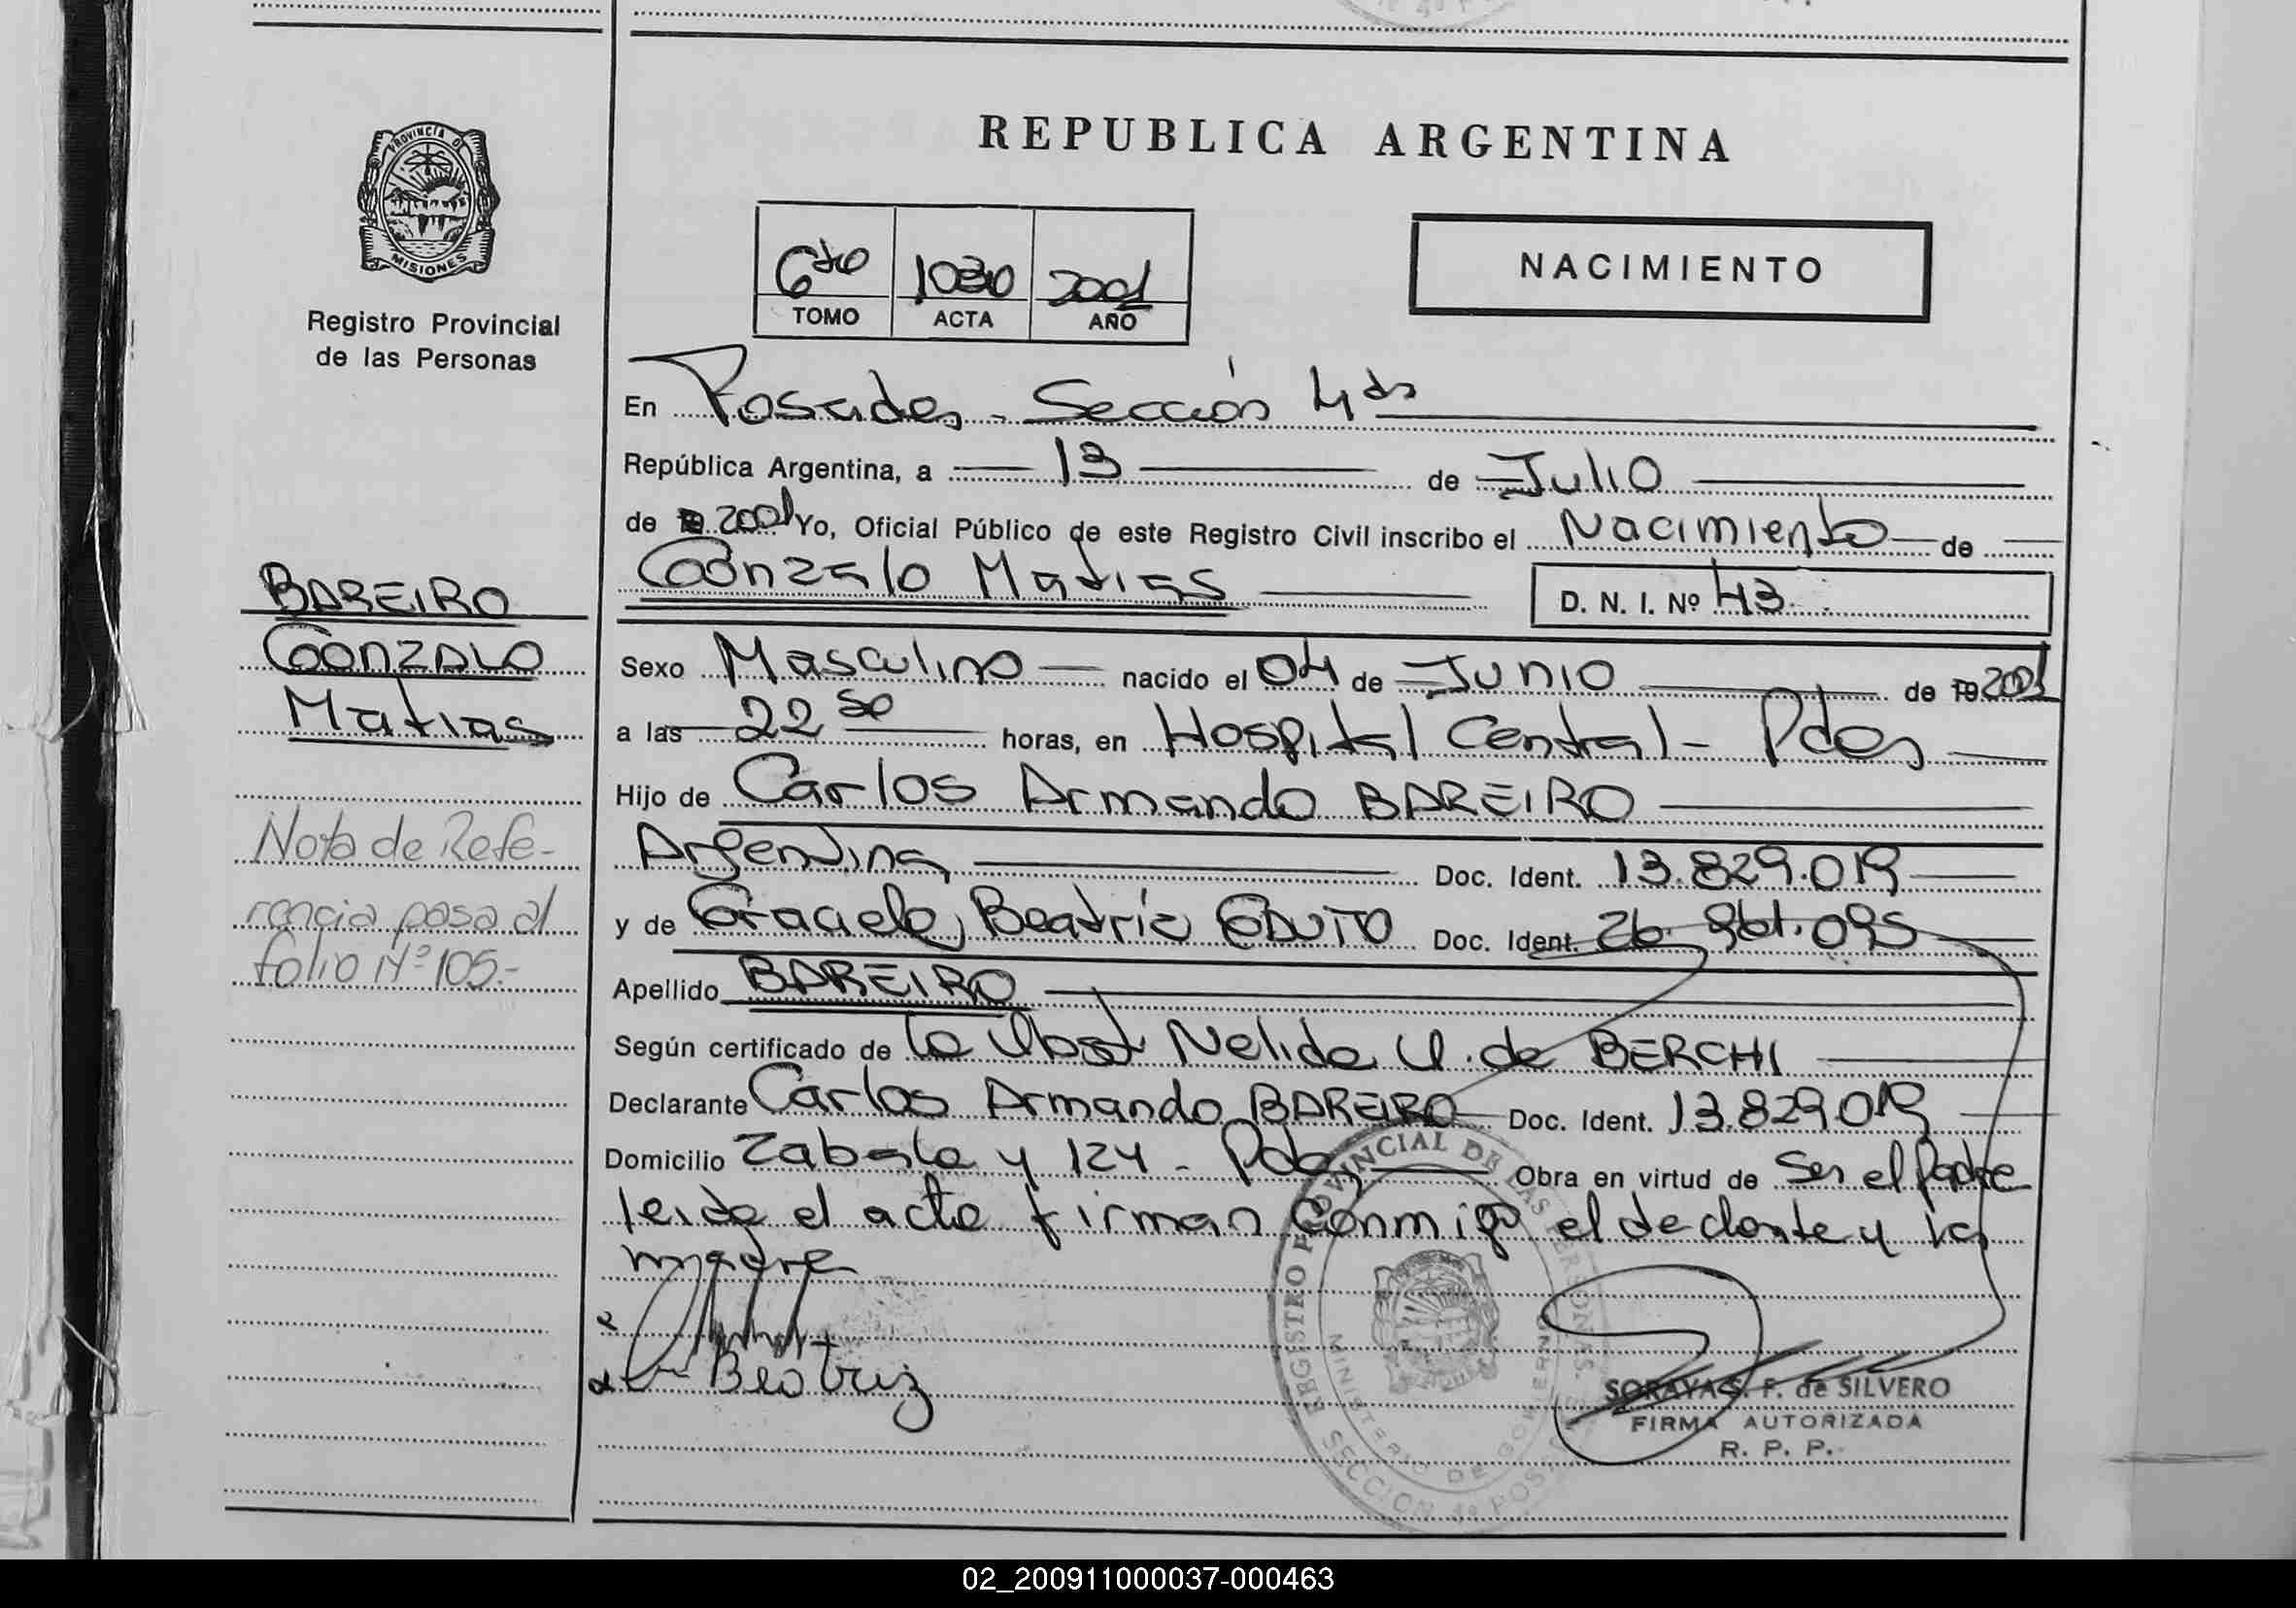 REPUBLICA ARGENTINA
PROVINCIA D
MISIONES
Registro Provincial
de las Personas
6to 1030 2001
TOMO ACTA AÑO
NACIMIENTO
En Posadas - Sección 4ta
República Argentina, a 13 de Julio
de 2001 Yo, Oficial Público de este Registro Civil inscribo el Nacimiento de
Gonzalo Matias D. N. I. Nº 43.
BAREIRO
GONZALO
Matias
Sexo Masculino nacido el 04 de Junio de 19 2001
a las 22 50 horas, en Hospital Central - Pdas
Hijo de Carlos Armando BAREIRO
Argentina Doc. Ident. 13.829.019
Nota de Refe-
rencia pasa al
folio Nº 105.-
y de Graciela Beatriz Doc. Ident. 26. 095
Apellido BAREIRO
Según certificado de la Obst Nelida U. de BERCHI
Declarante Carlos Armando BAREIRO Doc. Ident. 13.829.019
Domicilio Zabala y 124 - Pdas Obra en virtud de Ser el Padre
leida el acta firman Conmigo el declarante y la
madre
Beatriz
REGISTRO PROVINCIAL DE LAS PERSONAS
MINISTERIO DE GOBIERNO
SECCION 4º POSADAS
SORAYA S. F. de SILVERO
FIRMA AUTORIZADA
R. P. P.
02_200911000037-000463